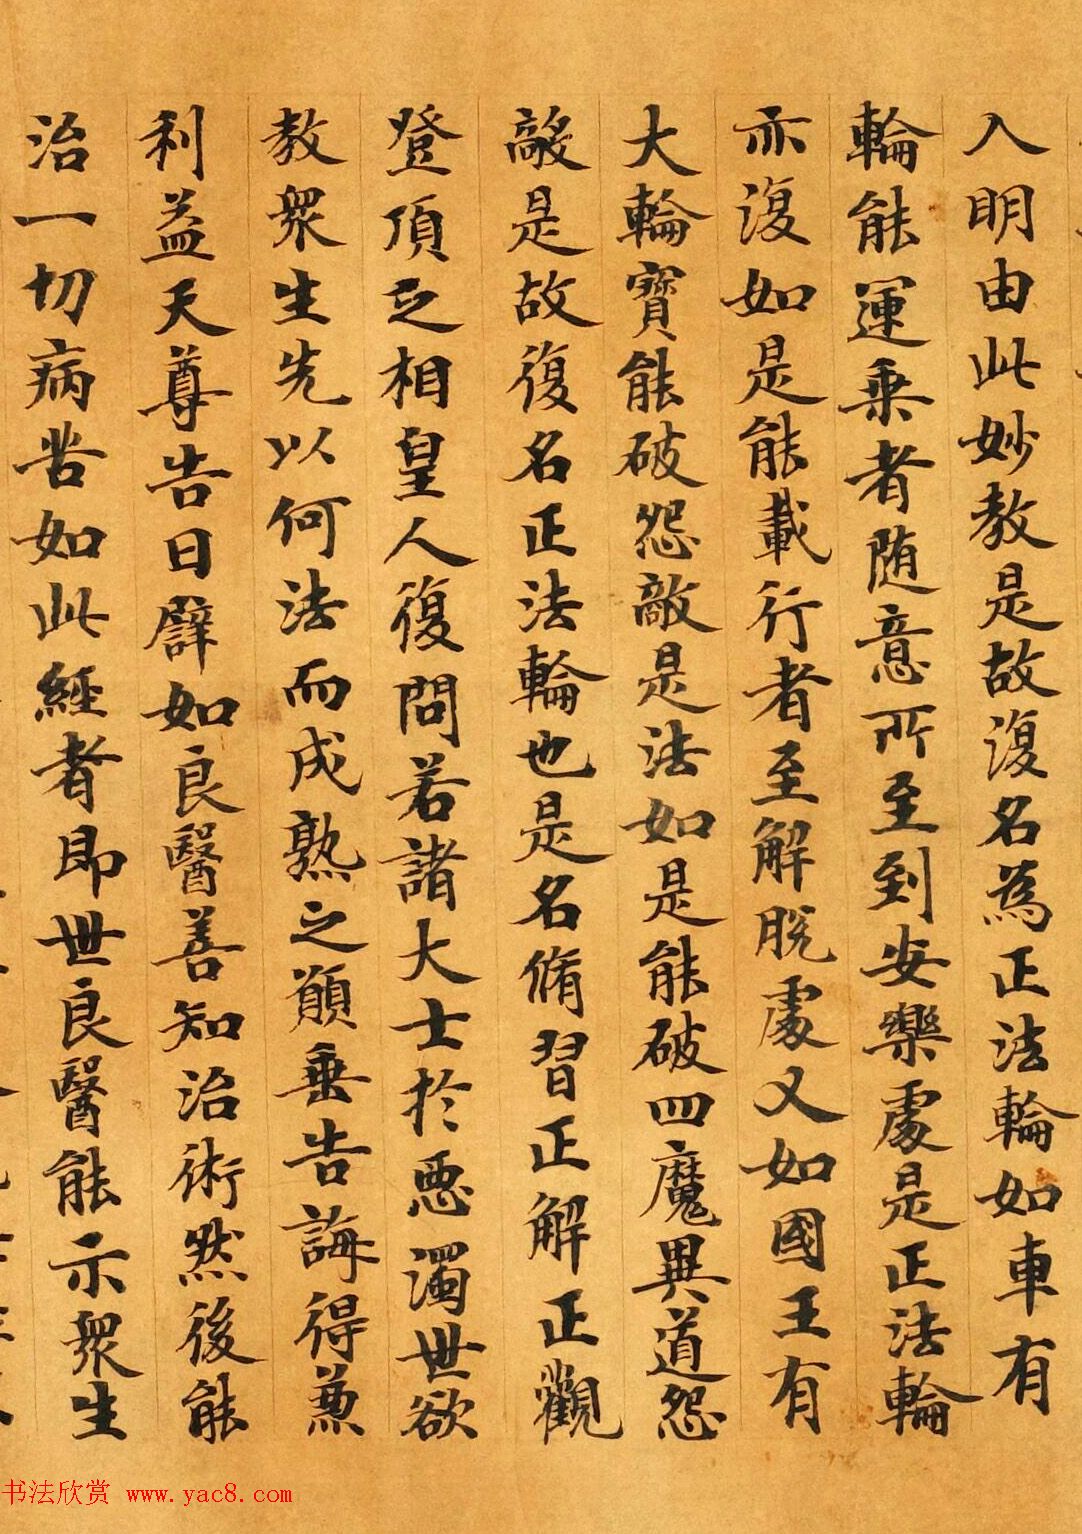 入明由此妙教是故復名為正法輪如車有
輪能運乗者随意所至到安樂處是正法輪
亦復如是能載行者至解脫處又如國王有
大輪寶能破怨敵是法如是能破四魔異道怨
敵是故復名正法輪也是名脩習正解正觀
登頂之相皇人復問若諸大士於惡濁世欲
教衆生先以何法而成熟之願垂告誨得兼
利益天尊告曰譬如良醫善知治術然後能
治一切病苦如此經者即世良醫能示衆生
书法欣赏 www.yac8.com